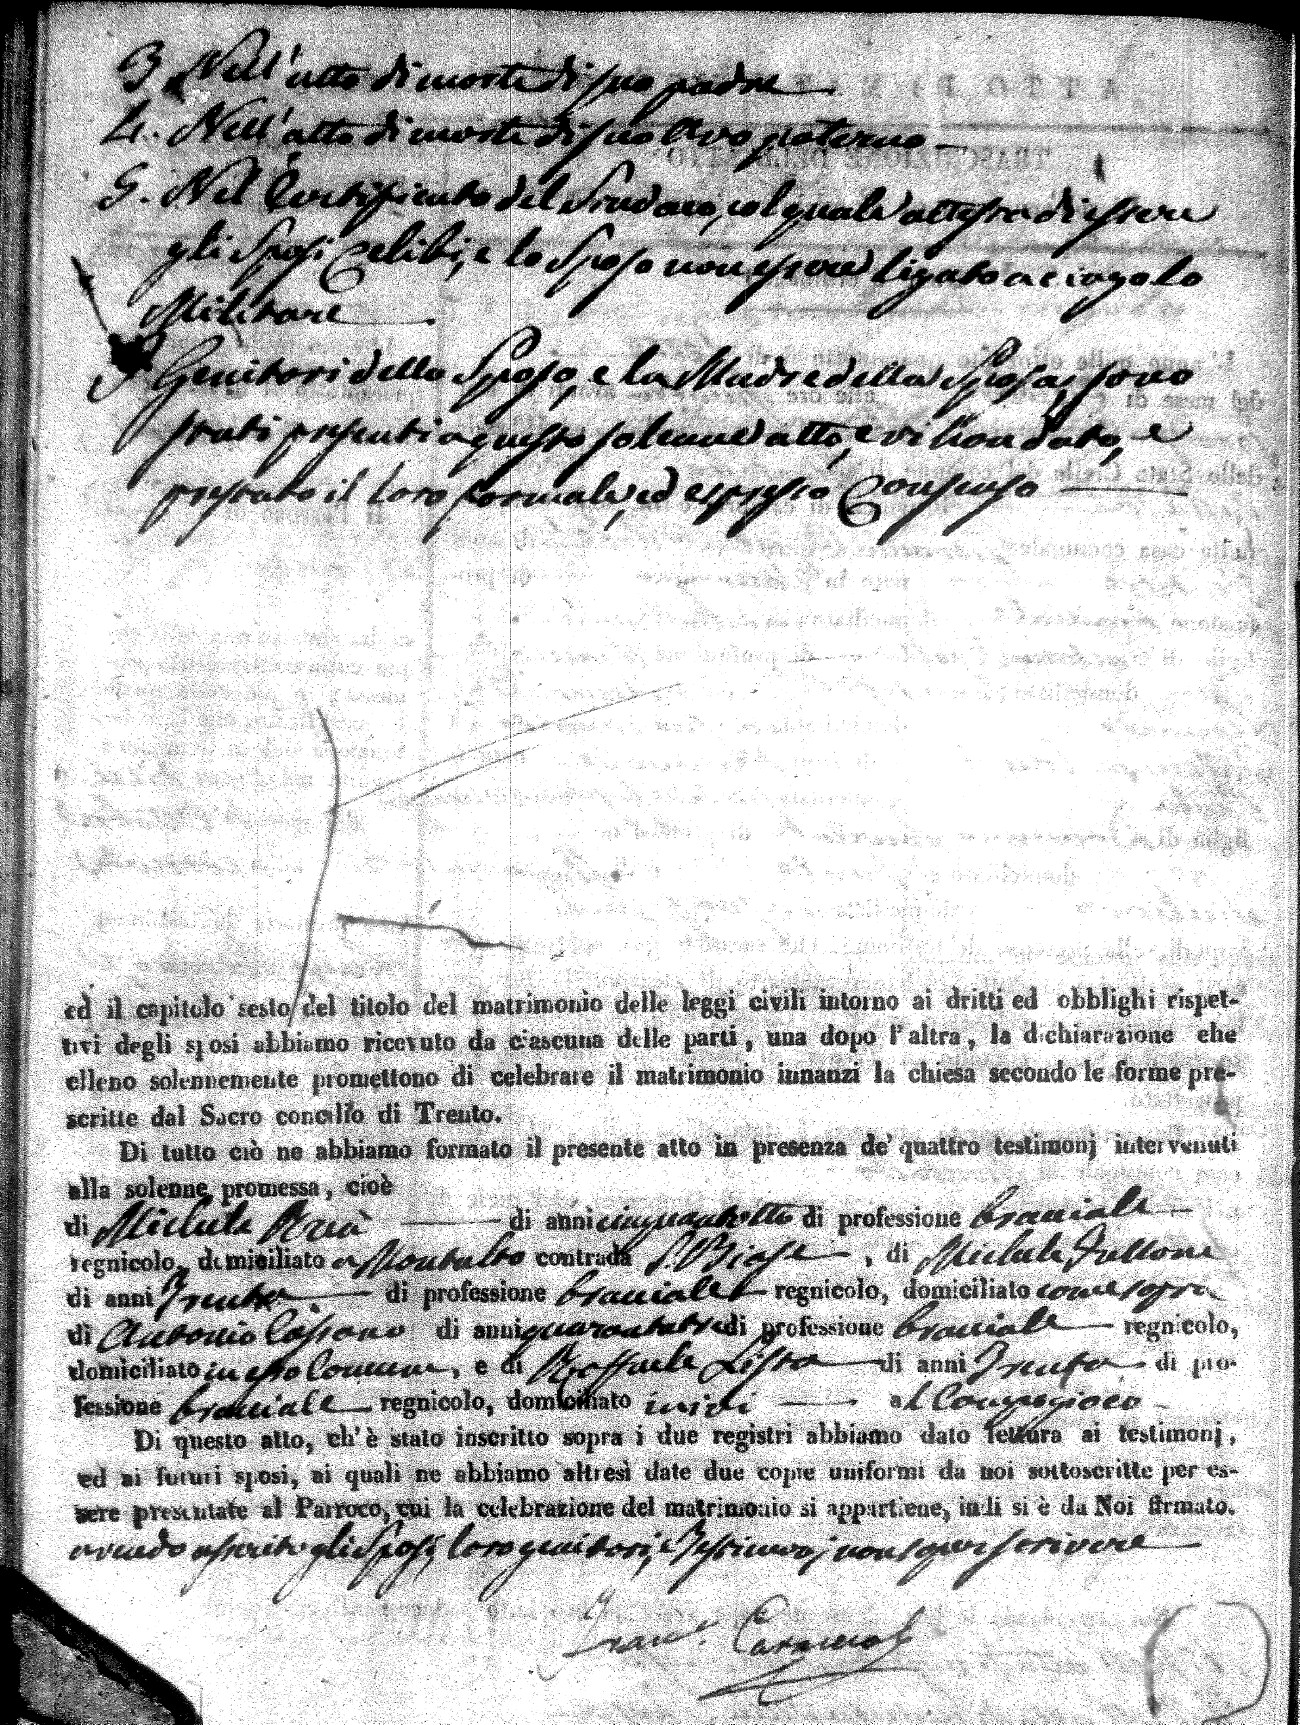 3. Nell'atto di morte di suo padre
4. Nell'atto di morte di suo Avo paterno
5. Nel Certificato del Sindaco, col quale attesta di essere
gli Sposi Celibi, e lo Sposo non essere ligato a cingolo
Militare
I Genitori dello Sposo, e la Madre della Sposa, sono
stati presenti a questo solenne atto, e vi han dato, e
prestato il loro formale, ed espresso Consenso
ed il capitolo sesto del titolo del matrimonio delle leggi civili intorno ai dritti ed obblighi rispet-
tivi degli sposi abbiamo ricevuto da ciascuna delle parti, una dopo l'altra, la dichiarazione che
elleno solennemente promettono di celebrare il matrimonio innanzi la chiesa secondo le forme pre-
scritte dal Sacro concilio di Trento.
Di tutto ciò ne abbiamo formato il presente atto in presenza de' quattro testimonj intervenuti
alla solenne promessa, cioè
di Michele di anni cinquantotto di professione bracciale
regnicolo, domiciliato a Montalto contrada S. Biase, di Michele Fullone
di anni Trenta di professione bracciale regnicolo, domiciliato come sopra
di Antonio Cassano di anni quarantatre di professione bracciale regnicolo,
domiciliato in esso Comune, e di Raffaele Lista di anni Trenta di pro-
fessione bracciale regnicolo, domiciliato ivi al
Di questo atto, ch'è stato inscritto sopra i due registri abbiamo dato lettura ai testimonj,
ed ai futuri sposi, ai quali ne abbiamo altresì date due copie uniformi da noi sottoscritte per es-
sere presentate al Parroco, cui la celebrazione del matrimonio si appartiene, indi si è da Noi firmato.
avendo asserito gli Sposi, loro genitori, e Testimonj non saper scrivere